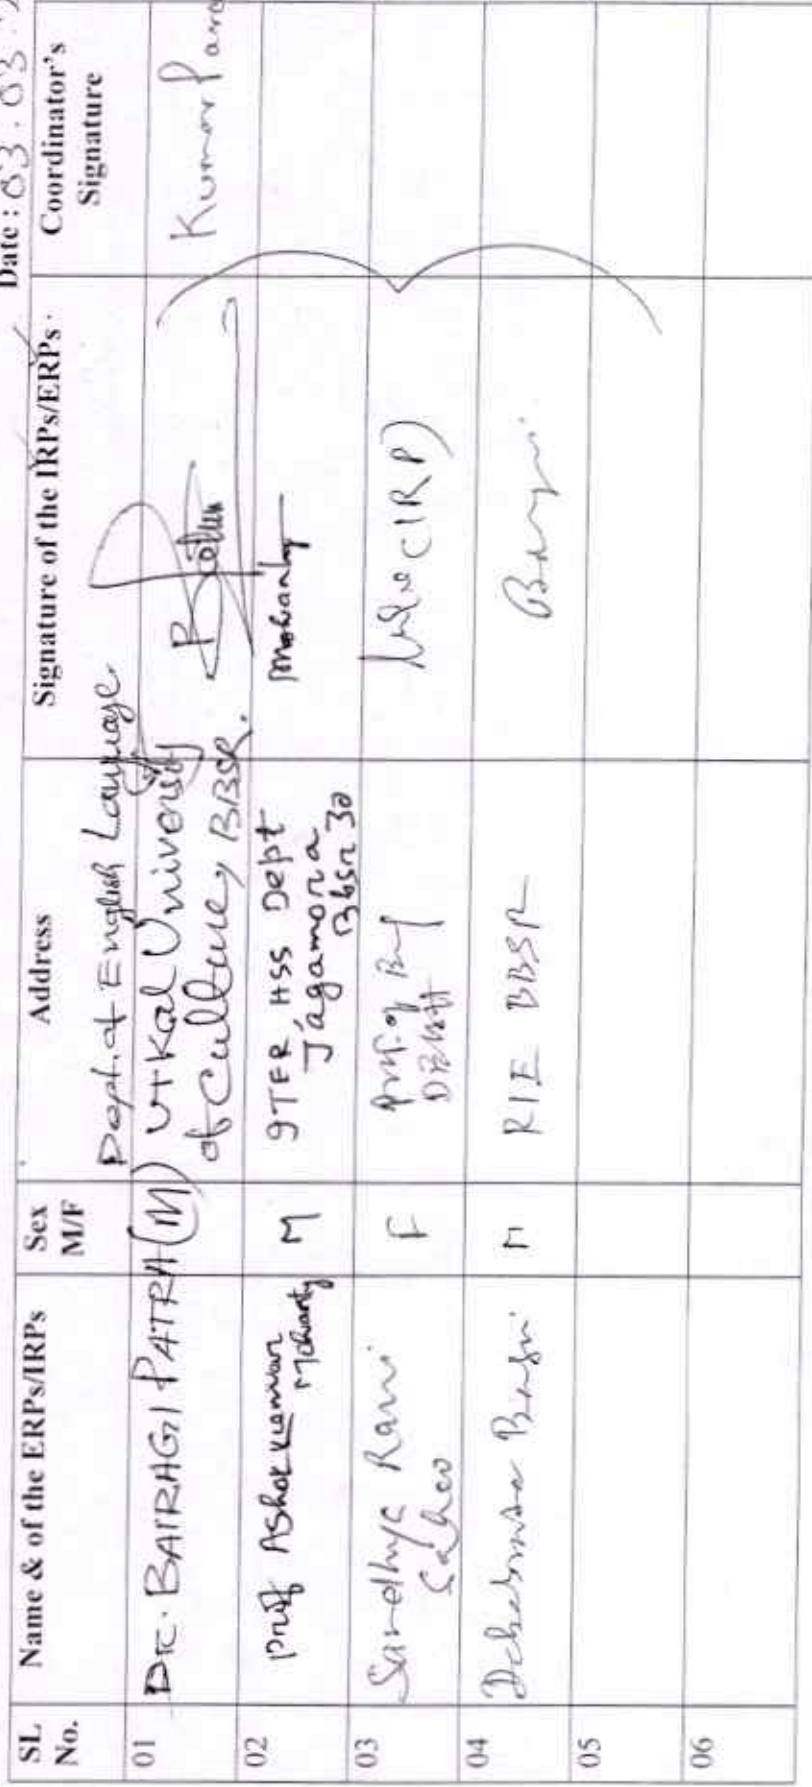 Date : 03.03
SL No.
Name & of the ERPs/IRPs
Sex M/F
Address
Signature of the IRPs/ERPs
Coordinator's Signature
01
Dr. BAIRAGI PATRA
(M)
Dept. of English Language
Utkal University
of Culture, BBSR.
Kumar
02
Prof Ashok Kumar
Mohanty
M
HSS Dept
Jagamora
Bbsr 30
Mohanty
03
Sandhya Rani
Sahoo
F
(IRP)
04
M
RIE BBSR
05
06